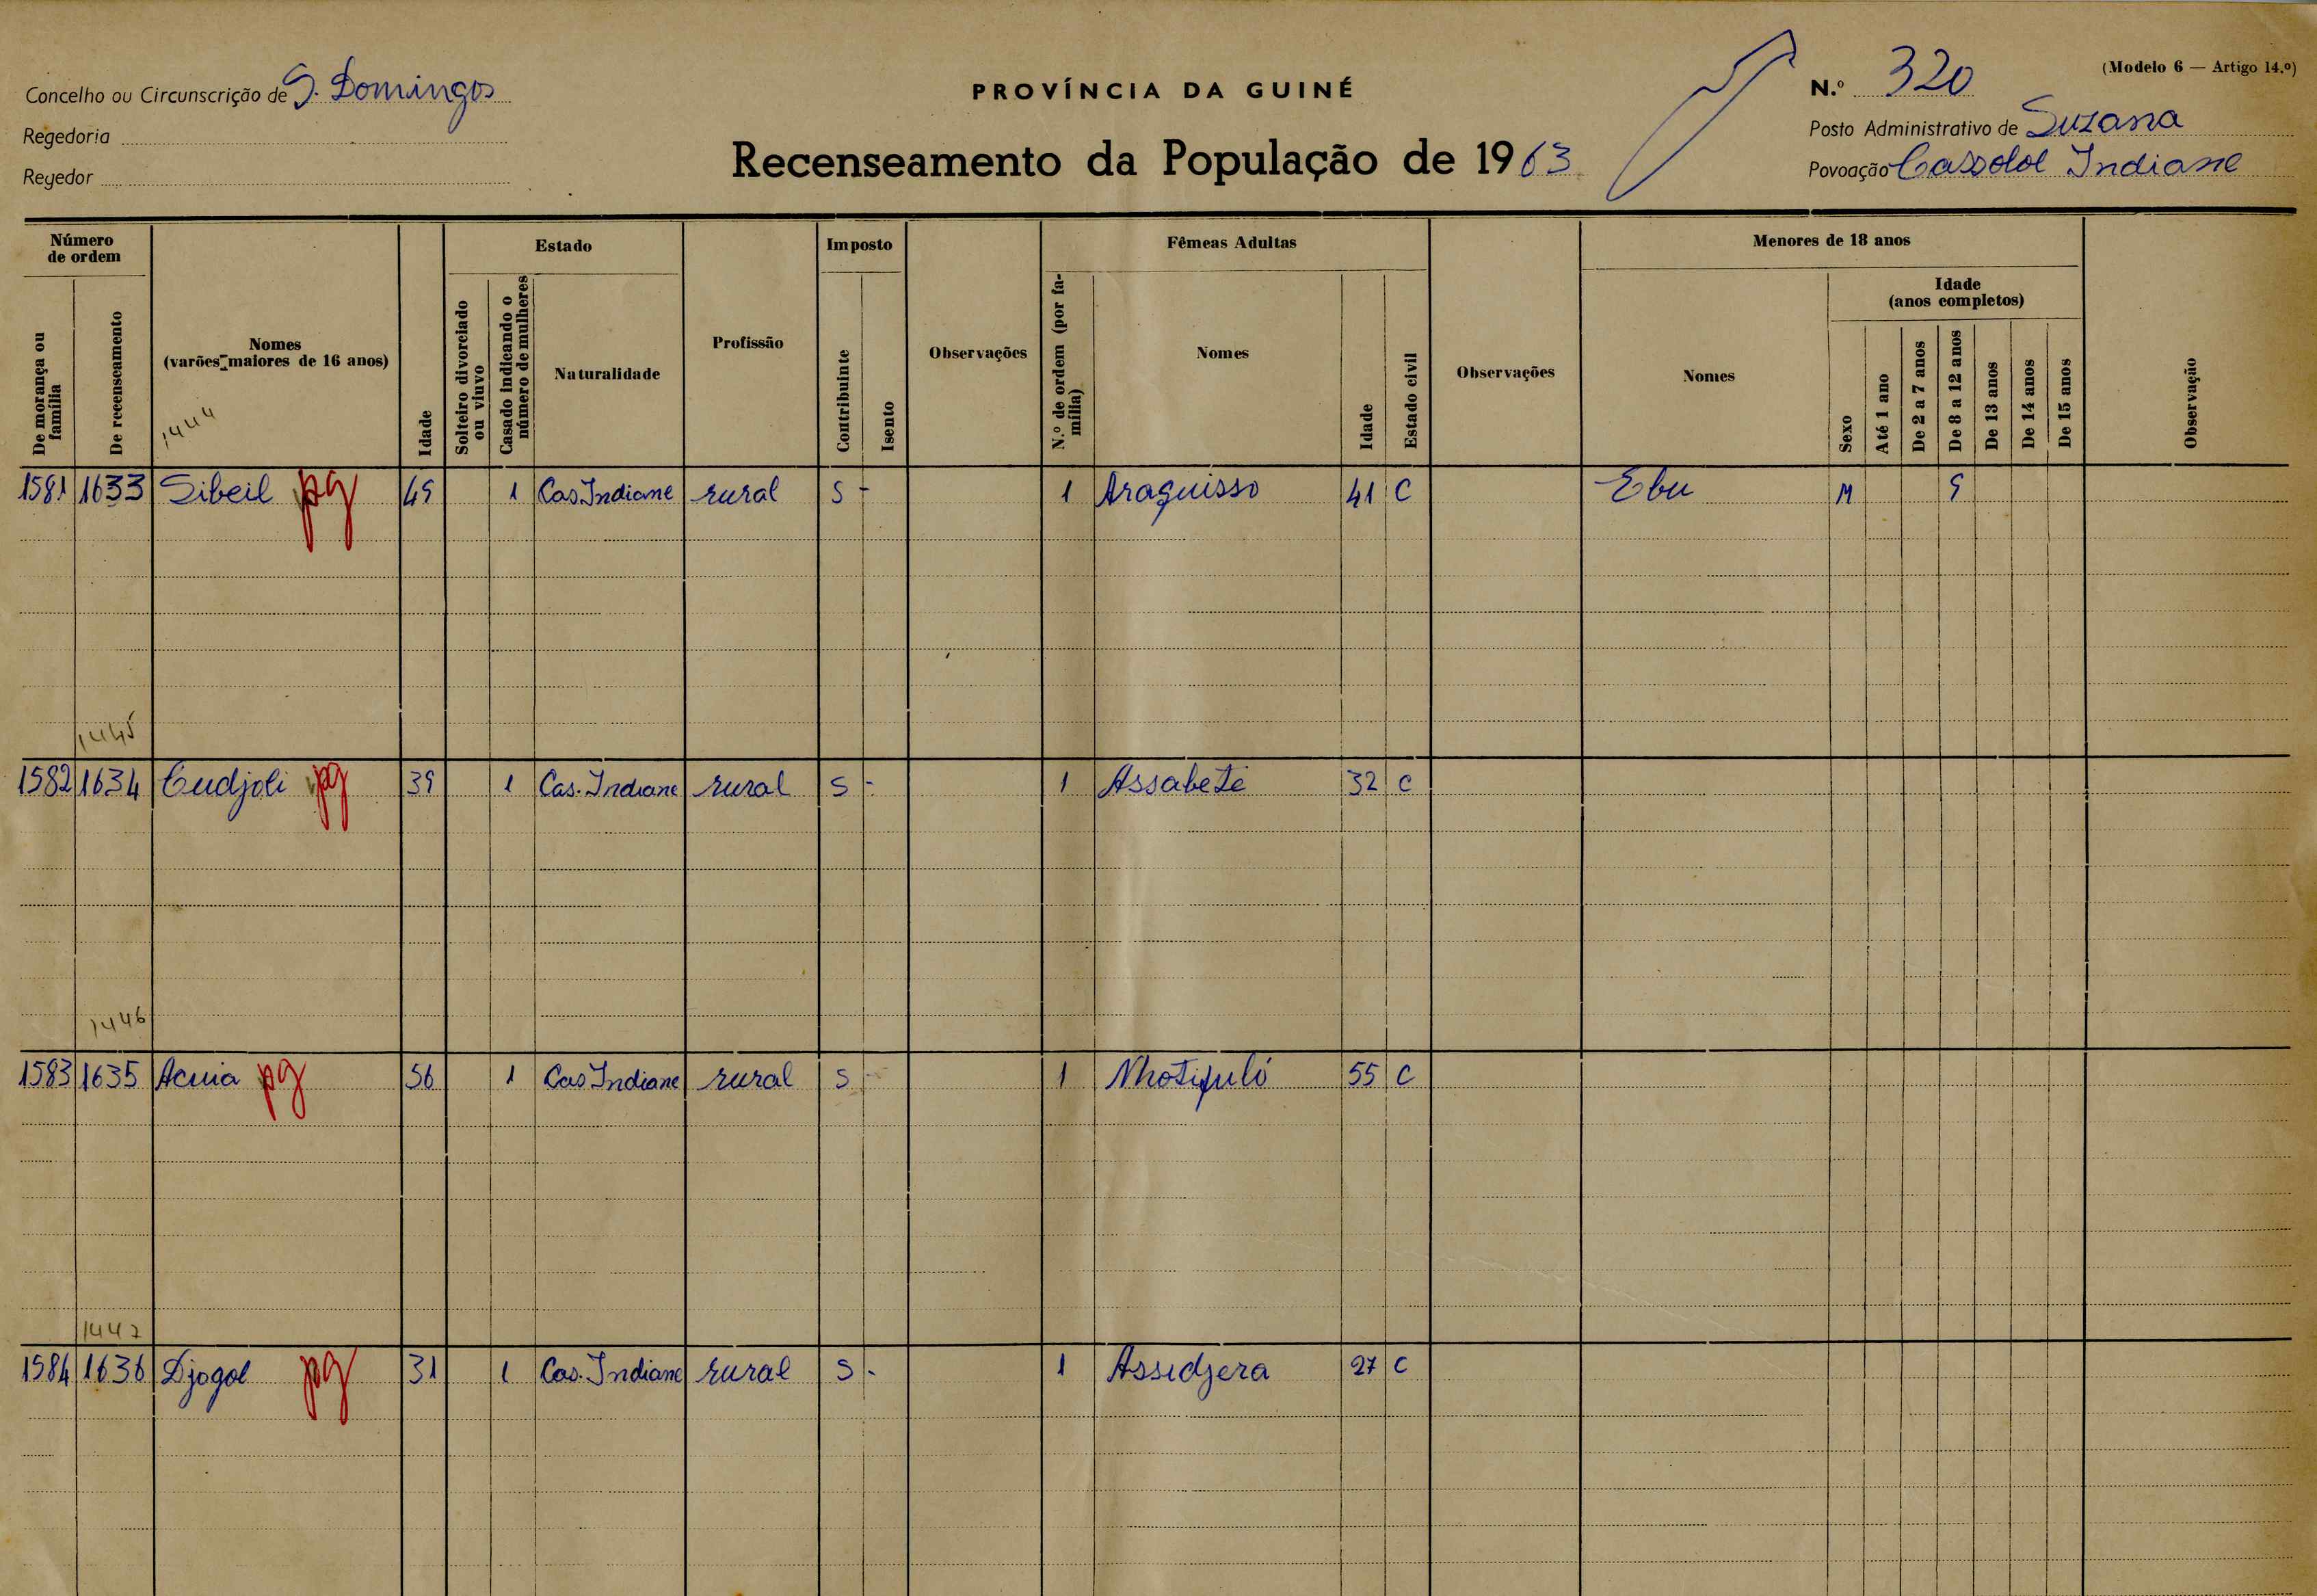 (Modelo 6 — Artigo 14.º)
Concelho ou Circunscrição de S. Domingos
PROVÍNCIA DA GUINÉ
N.º 320
Regedoria
Posto Administrativo de Suzana
Recenseamento da População de 1963
Regedor
Povoação Cassolol Indiane
Número de ordem
De morança ou família
De recenseamento
Nomes
(varões maiores de 16 anos)
1444
Idade
Estado
Solteiro divorciado ou viuvo
Casado indicando o número de mulheres
Naturalidade
Profissão
Imposto
Contribuinte
Isento
Observações
Fêmeas Adultas
N.º de ordem (por família)
Nomes
Idade
Estado civil
Observações
Menores de 18 anos
Nomes
Sexo
Idade
(anos completos)
Até 1 ano
De 2 a 7 anos
De 8 a 12 anos
De 13 anos
De 14 anos
De 15 anos
Observação
1581 1633 Sibeil pg 49 1 Cas. Indiane rural S - 1 Araguisso 41 C Ebu M 9
1445
1582 1634 Cudjoli pg 39 1 Cas. Indiane rural S - 1 Assabete 32 C
1446
1583 1635 pg 56 1 Cas Indiane rural S - 1 55 C
1447
1584 1636 Djogol pg 31 1 Cas. Indiane rural S - 1 Assidjera 27 C